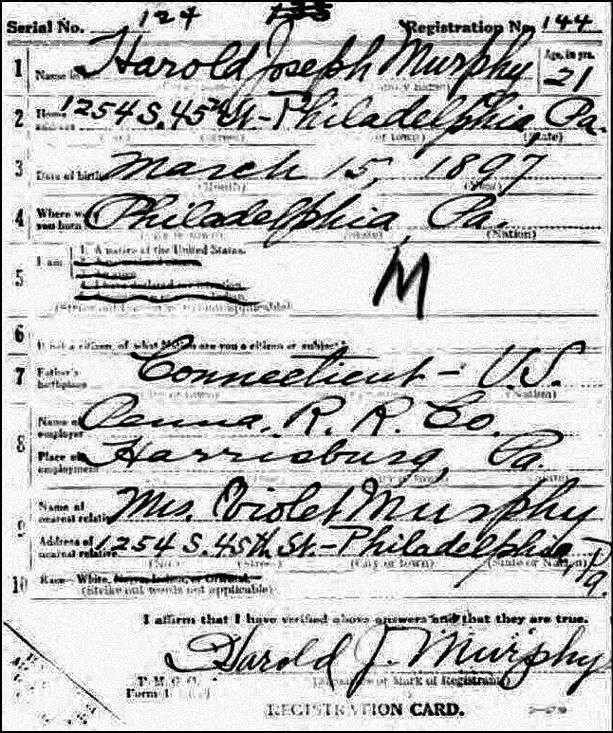 Serial No. 124 135 Registration No. 144
1 Name in Harold Joseph Murphy Age, in yrs. 21
2 Home 1254 S. 45th St - Philadelphia, Pa.
(Street) or town) (State)
3 Date of birth March 15, 1897
(Month) (Year)
4 Where were you born Philadelphia, Pa.
(Nation)
5 I am 1. A native of the United States.
M
6 If not a citizen, of what Nation are you a citizen or subject?
7 Father's birthplace Connecticut - U.S.
(Nation)
8 Name of employer Penna. R. R. Co.
Place of employment Harrisburg, Pa.
9 Name of nearest relative Mrs. Violet Murphy
Address of nearest relative 1254 S. 45th St. - Philadelphia, Pa.
(No.) (Street) (City or town) (State or Nation)
10 Race - White,
(Strike out words not applicable)
I affirm that I have verified above answers and that they are true.
Harold J. Murphy
P. M. G. O. (Signature or Mark of Registrant)
Form 1
REGISTRATION CARD.